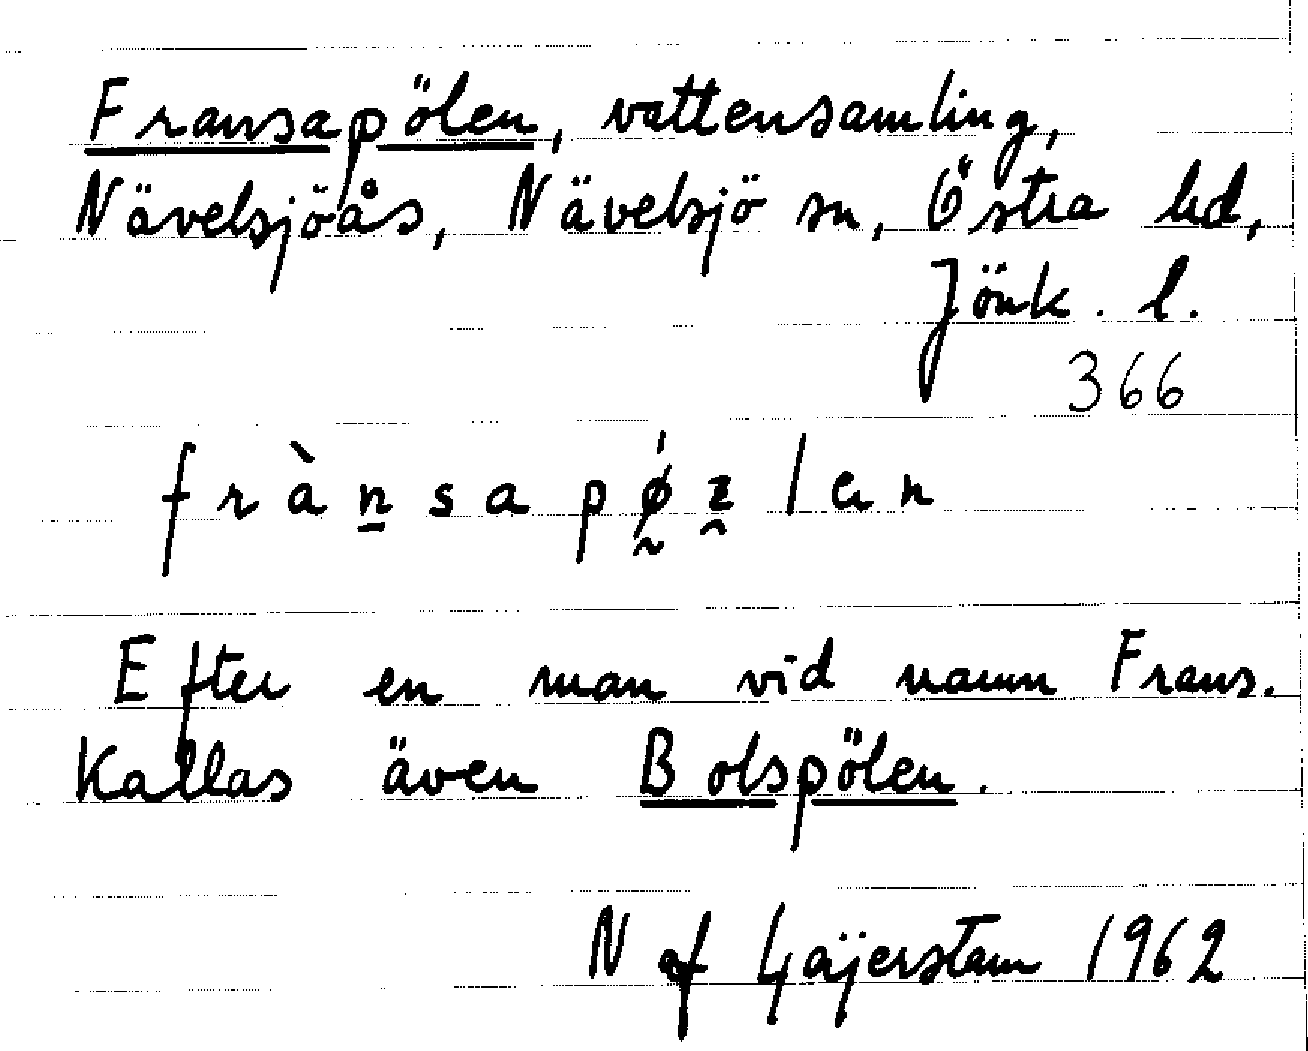 Fransapölen, vattensamling,
Nävelsjöås, Nävelsjö sn, Östra hd,
Jönk. l.
366
frànsapǿ̰ɪlen
Efter en man vid namn Frans.
Kallas även Bolspölen.
N af Gäijerstam 1962